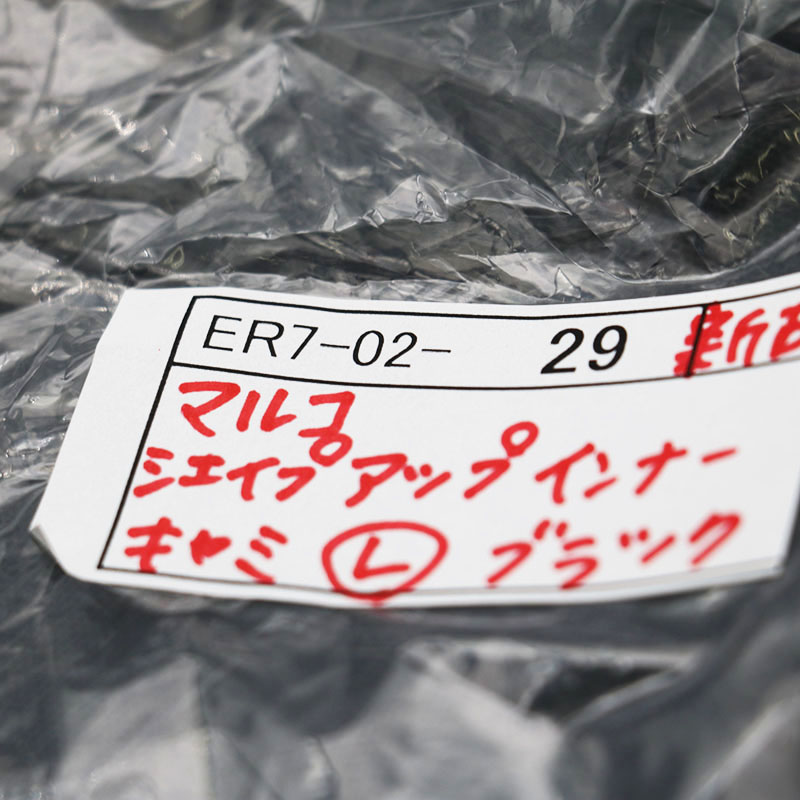 ER7-02- 29 新品
マルコ。
シエイプアップインナー
キャミ Ⓛ ブラック